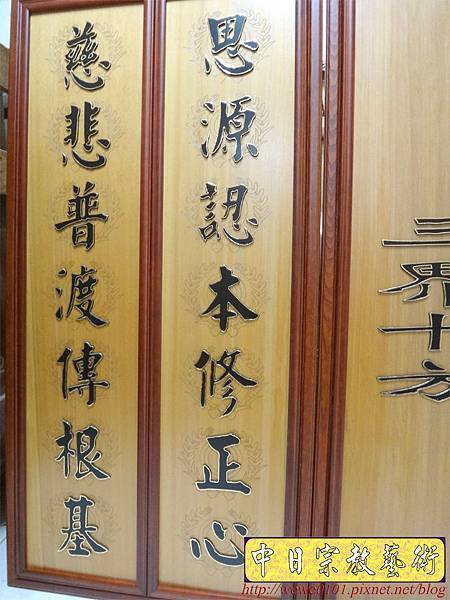 思源認本修正心
慈悲普渡傳根基
三界十方
中日宗教藝術
http://wowo0101.pixnet.net/blog